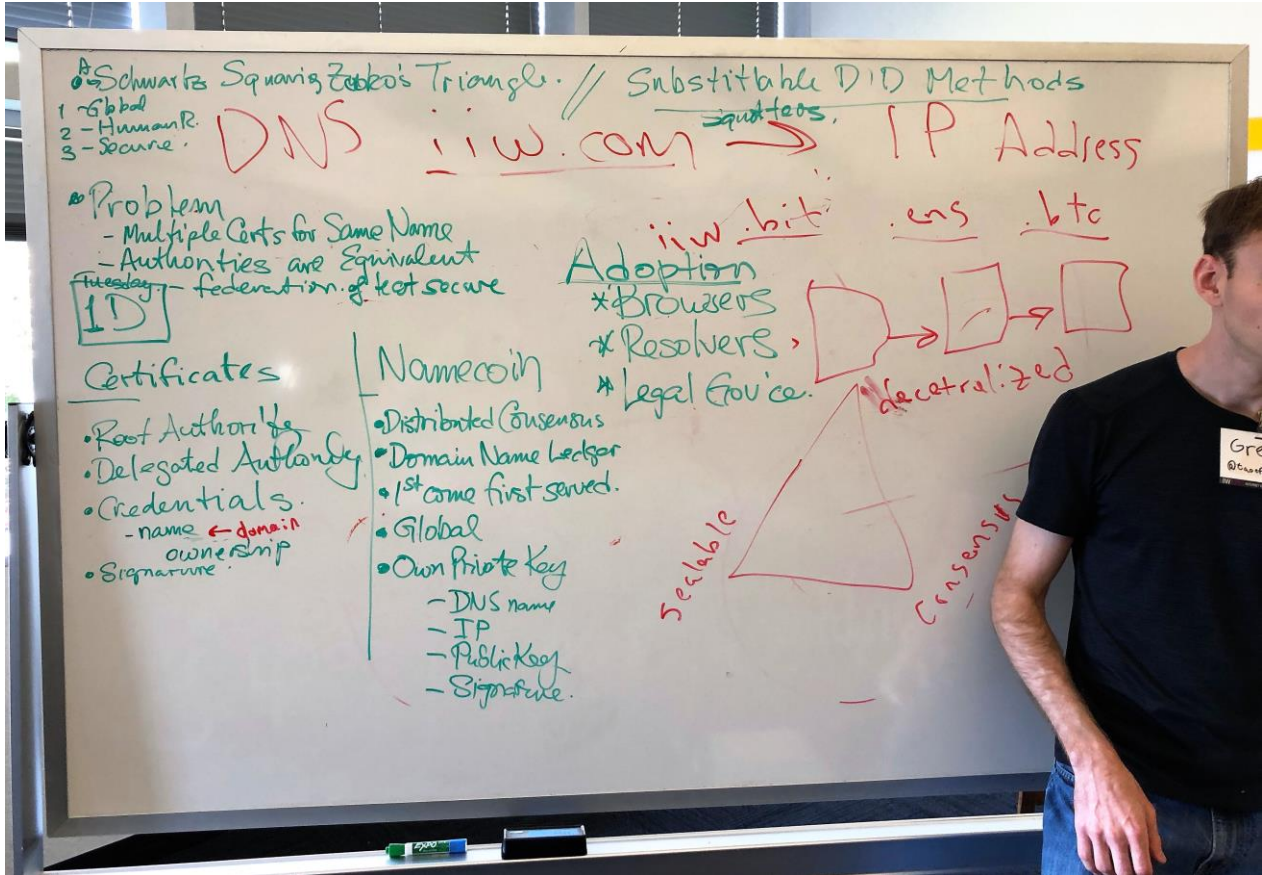 A Schwartz Squaring Zooko's Triangle. // Substitable DID Methods
1 - Global
2 - Human R.
3 - Secure.
squatters.
DNS iiw.com → IP Address
Problem
- Multiple Certs for Same Name
- Authorities are Equivalent
- federation of least secure
Tuesday
1D
iiw.bit .ens .btc
Adoption
* Browsers
* Resolvers
* Legal
Certificates
• Root Authority
• Delegated Authority
• Credentials.
- name ← domain
ownership
• Signature.
Namecoin
• Distributed Consensus
• Domain Name Ledger
• 1st come first served.
• Global
• Own Private Key
- DNS name
- IP
- Public Key
- Signature.
decetralized
Scalable
Consensus
Gre